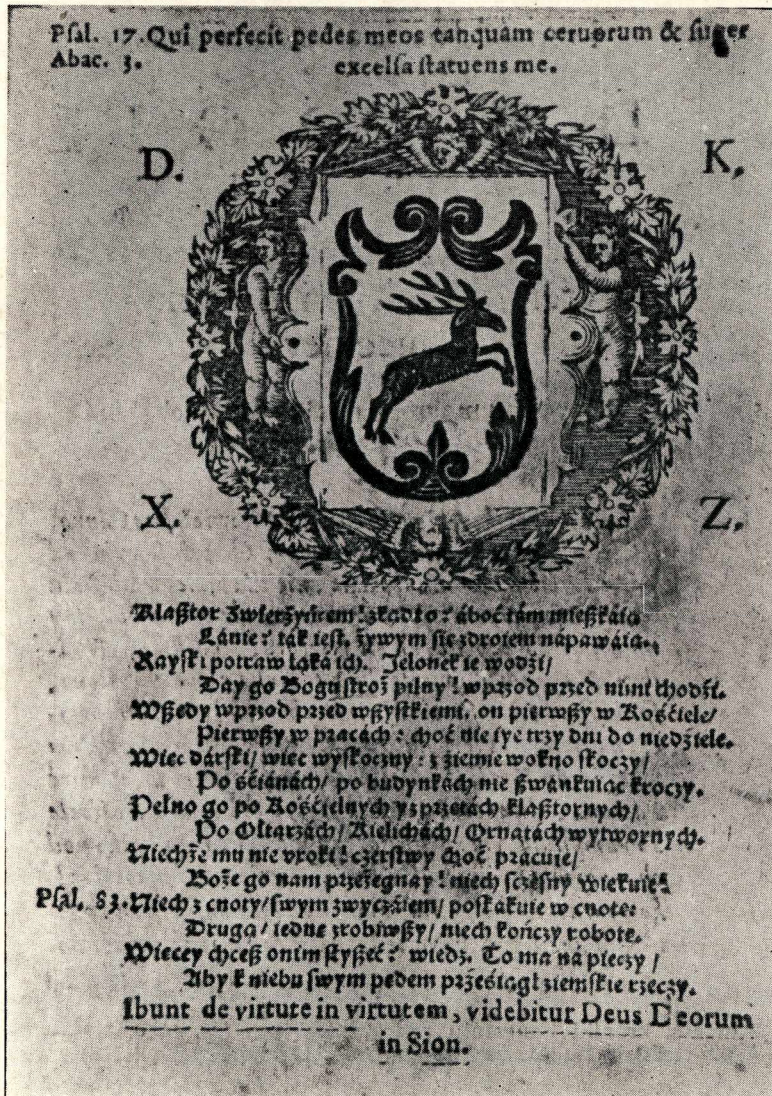 Psal. 17. Qui perfecit pedes meos tanquam ceruorum & super
Abac. 3. excelsa statuens me.
D. K.
X. Z.
Klasztor Zwierzyńcem! zkąd to? áboć tám mieszkáią
Lánie? ták iest, żywym się zdroiem nápawáią.
Rayski potraw łąká ich. Jelonek ie wodźi/
Day go Bogu stroż pilny! wprzod przed nimi chodźi.
Wszędy wprzod przed wszystkiemi, on pierwszy w Kośćiele/
Pierwszy w pracách: choć nie iye trzy dni do niedźiele.
Wiec dárski/ wiec wyskoczny: z źiemie w okno skoczy/
Po śćianách/ po budynkách nie szwánkuiąc kroczy.
Pełno go po Kośćielnych y sprzętách klasztornych/
Po Ołtarzách/ Kielichách/ Ornatách wytwornych.
Niechże mu nie vroki! czerstwy choć pracuie/
Boże go nam przeżegnay! niech sczęsny wiekuie!
Psal. 83. Niech z cnoty/ swym zwyczáiem/ poskákuie w cnotę:
Drugą/ iednę zrobiwszy/ niech kończy robotę.
Więcey chcesz o nim słyszeć? wiedz. To ma ná pieczy/
Aby k niebu swym pędem prześćiągł źiemskie rzeczy.
Ibunt de virtute in virtutem, videbitur Deus Deorum
in Sion.